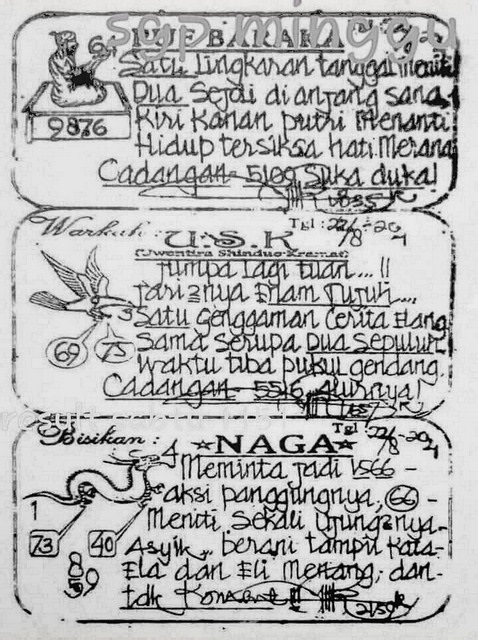 sgp minggu
PUE BALAKA
Satu lingkaran tanggal meniti
Dua Sejoli dianjang sana
Kiri Kanan putri Menanti
Hidup tersiksa hati Merana
Cadangan- 5109 Suka duka!
9876
Warkah :
U.S.K
Tgl : 22/8-20
Jumpa lagi tuan...!!
Jari2nya Enam Tujuh...
Satu genggaman Cerita Elang
Sama Serupa Dua Sepuluh
Waktu tiba pukul gendang.
Cadangan- 5516
69
75
result sabtu 1151
Bisikan :
NAGA
Tgl : 22/8-20
Meminta jadi
aksi panggungnya, 66 -
Meniti Sekali Ujung2nya-
Asyik... berani tampil Kata-
Ela dan Eli Menang, dan-
tdk
2159
4
1
73
40
8
59